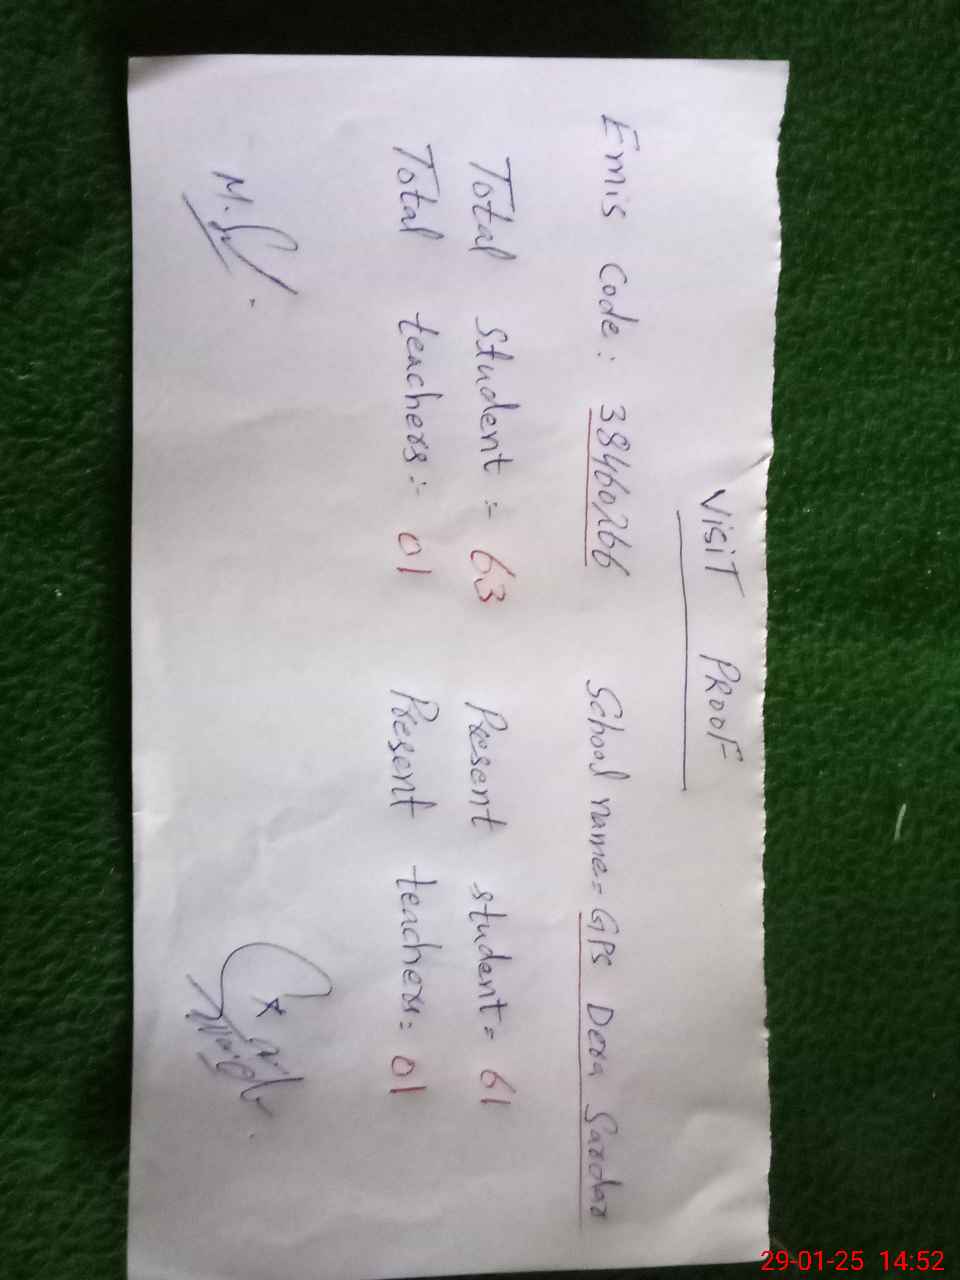 VISIT PROOF
Emis Code: 38460266 School name= GPS Dera Sardar
Total student :- 63 Present student = 61
Total teachers :- 01 Present teachers = 01
29-01-25 14:52